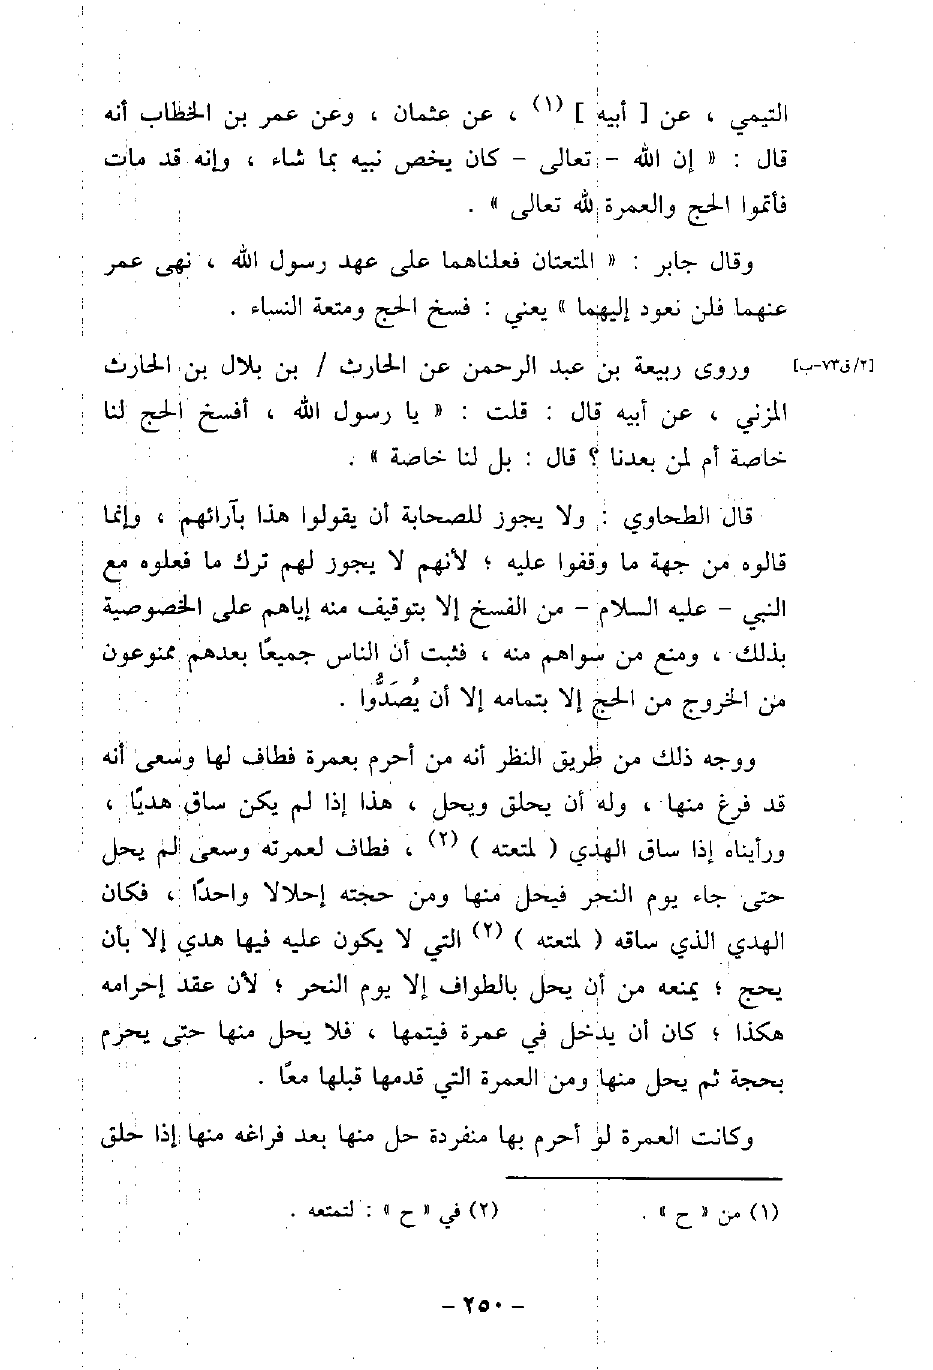 التيمي ، عن [ أبيه ] (١) ، عن عثمان ، وعن عمر بن الخطاب أنه
قال : « إن الله - تعالى - كان يخص نبيه بما شاء ، وإنه قد مات
فأتموا الحج والعمرة لله تعالى » .
وقال جابر : « المتعتان فعلناهما على عهد رسول الله ، نهى عمر
عنهما فلن نعود إليهما » يعني : فسخ الحج ومتعة النساء .
[٢/ق٧٣-ب] وروى ربيعة بن عبد الرحمن عن الحارث / بن بلال بن الحارث
المزني ، عن أبيه قال : قلت : « يا رسول الله ، أفسخ الحج لنا
خاصة أم لمن بعدنا ؟ قال : بل لنا خاصة » .
قال الطحاوي : ولا يجوز للصحابة أن يقولوا هذا بآرائهم ، وإنما
قالوه من جهة ما وقفوا عليه ؛ لأنهم لا يجوز لهم ترك ما فعلوه مع
النبي - عليه السلام - من الفسخ إلا بتوقيف منه إياهم على الخصوصية
بذلك ، ومنع من سواهم منه ، فثبت أن الناس جميعًا بعدهم ممنوعون
من الخروج من الحج إلا بتمامه إلا أن يُصَدُّوا .
ووجه ذلك من طريق النظر أنه من أحرم بعمرة فطاف لها وسعى أنه
قد فرغ منها ، وله أن يحلق ويحل ، هذا إذا لم يكن ساق هديًا ،
ورأيناه إذا ساق الهدي ( لمتعته ) (٢) ، فطاف لعمرته وسعى لم يحل
حتى جاء يوم النحر فيحل منها ومن حجته إحلالا واحدًا ، فكان
الهدي الذي ساقه ( لمتعته ) (٢) التي لا يكون عليه فيها هدي إلا بأن
يحج ؛ يمنعه من أن يحل بالطواف إلا يوم النحر ؛ لأن عقد إحرامه
هكذا ؛ كان أن يدخل في عمرة فيتمها ، فلا يحل منها حتى يحرم
بحجة ثم يحل منها ومن العمرة التي قدمها قبلها معًا .
وكانت العمرة لو أحرم بها منفردة حل منها بعد فراغه منها إذا حلق
(١) من « ح » . (٢) في « ح » : لتمتعه .
- ٢٥٠ -